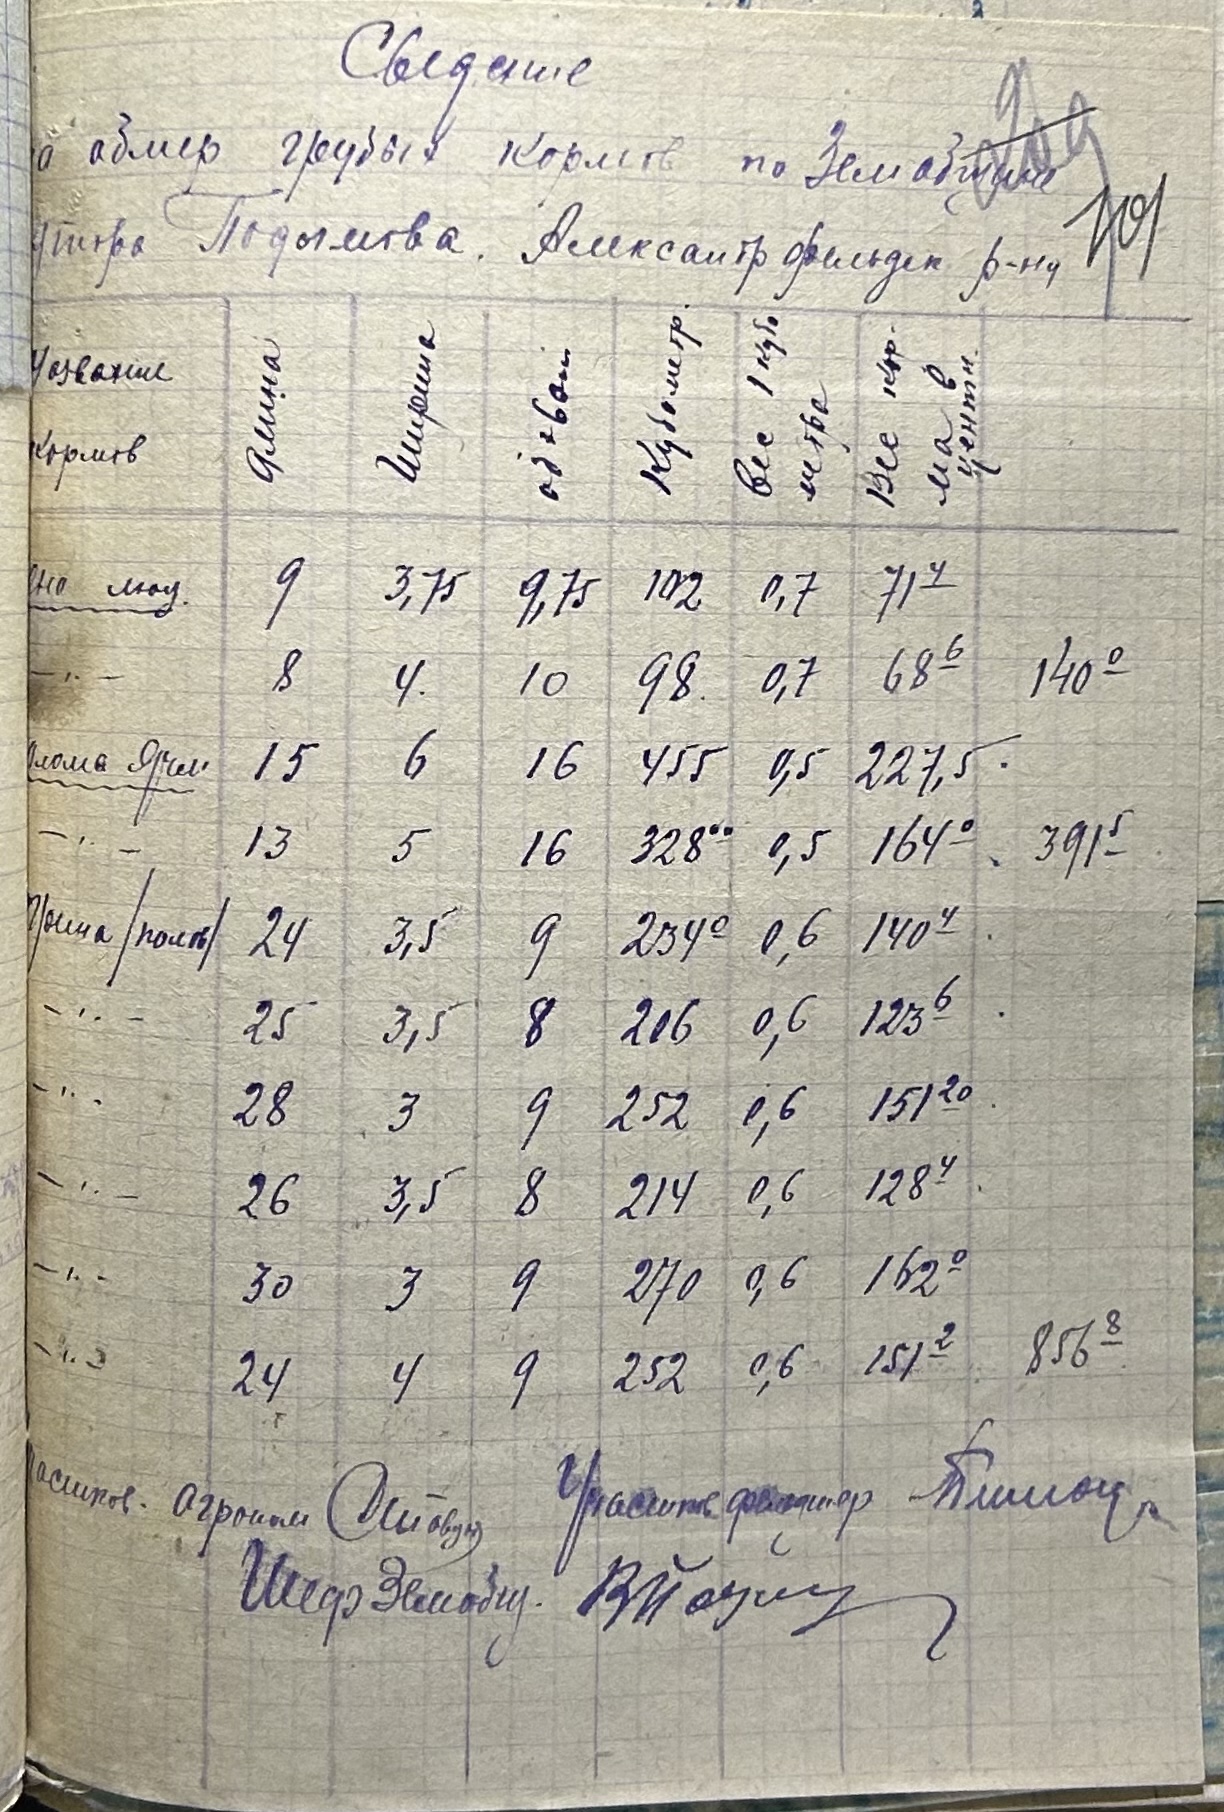 Сведение
о обмер грубых кормов по Земобщине
хутора Подымова. Александрфельдск р-на
209
101
Название кормов | Длина | Ширина | обхват | Кубометр. | Вес 1 кубометра | Вес корма в центн.
сено люц. 9 3,75 9,75 102 0,7 71 4
-"- 8 4. 10 98. 0,7 68 6 140 0
солома Ячм 15 6 16 455 0,5 227,5
-"- 13 5 16 328 00 0,5 164 0 391 5
/полов/ 24 3,5 9 234 0 0,6 140 4
-"- 25 3,5 8 206 0,6 123 6
-"- 28 3 9 252 0,6 151 20
-"- 26 3,5 8 214 0,6 128 4
-"- 30 3 9 270 0,6 162 0
-"- 24 4 9 252 0,6 151 2 856 8
Участков. агроном Участков
Шеф Земобщ.